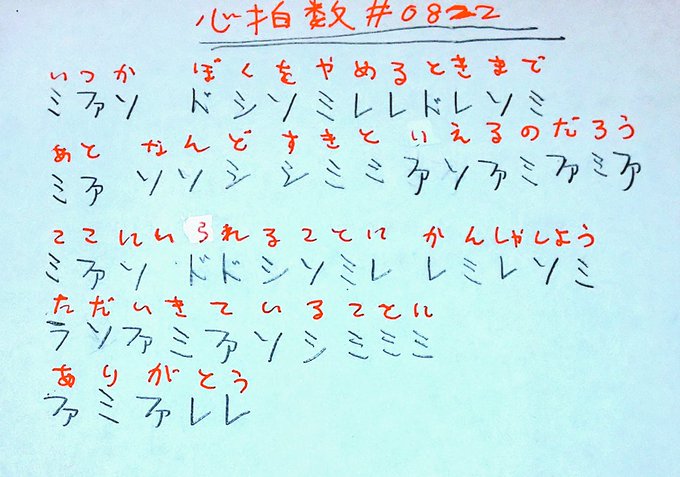 心拍数 #0822
いつか ぼくをやめるときまで
ミファソ ドシソミレレドレソミ
あと なんど すきと いえるのだろう
ミファ ソソシ シミミ ファソファミファミファ
ここにいられることに かんしゃしよう
ミファソ ドドシソミレ レミレソミ
ただいきていることに
ラソファミファソシミミミ
ありがとう
ファミファレレ